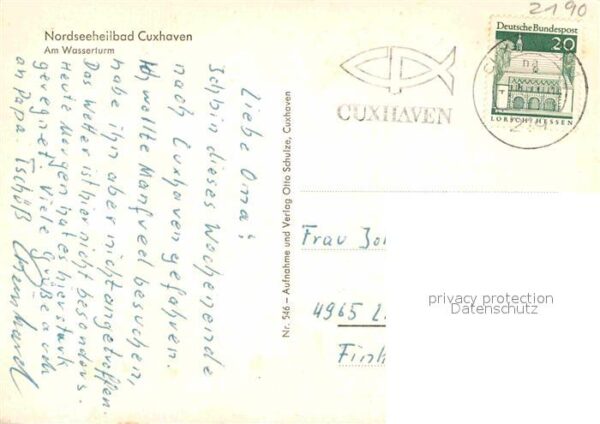 2190
Nordseeheilbad Cuxhaven
Am Wasserturm
Liebe Oma!
Ich bin dieses Wochenende
nach Cuxhaven gefahren.
Ich wollte Manfred besuchen,
habe ihn aber nicht angetroffen.
Das Wetter ist hier nicht besonders.
Heute Morgen hat es hier stark
geregnet. Viele Grüße auch
an Papa. Tschüß
Nr. 546 – Aufnahme und Verlag Otto Schulze, Cuxhaven
CUXHAVEN
Deutsche Bundespost
20
LORSCH/HESSEN
Frau
4965
privacy protection
Datenschutz